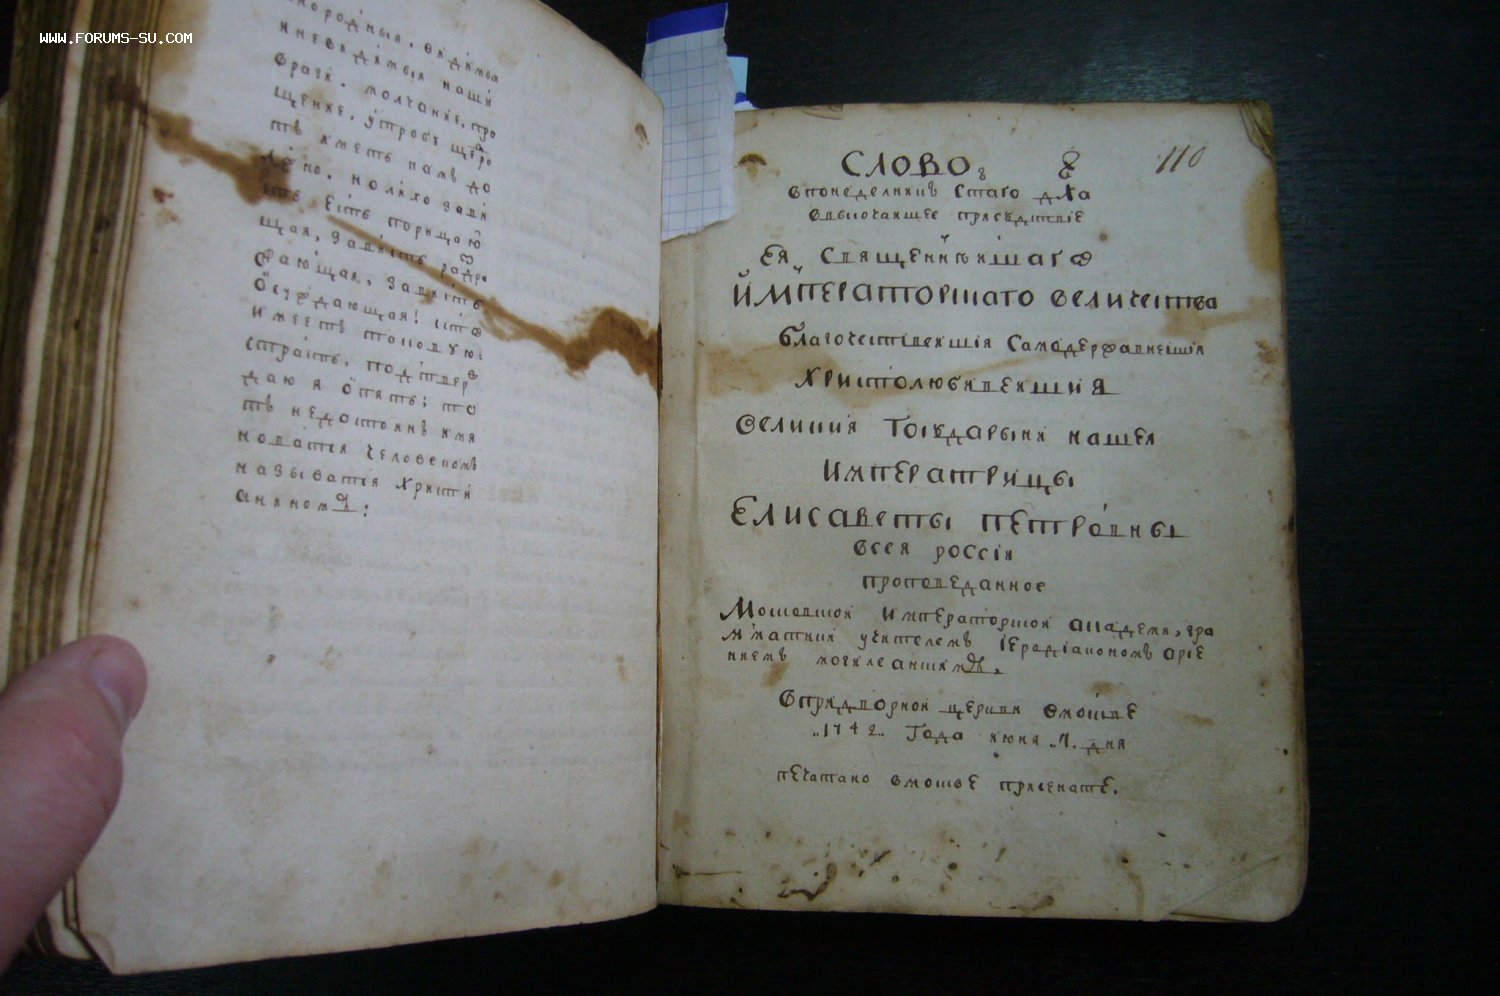 WWW.FORUMS-SU.COM
инородныя, видимыя
и невидимыя наши
враги. молчание, про
щение, утробу щедро
тъ иметь намъ до
лжно. колико зави
сть есть порицаю
щая, зависть раздра
жающая, зависть
осуждающая! сто
имеетъ таковую:
страсть, подтвер
даю я опять; что
тъ недостоинъ имя
новатся человекомъ
называтся христи
аниномъ:
СЛОВО, 110
в понеделникъ стаго дха
Ввысочаишее присудствие
ЕЯ СВЯЩЕННЕИШАГѠ
ИМПЕРАТОРСКАГО величества
благочестивеишия Самодержавнеишия
ХРИСТОЛЮБИВЕИШИЯ
великия Государыни нашея
ИМПЕРАТРИЦЫ
ЕЛИСАВЕТЫ ПЕТРОВНЫ
всея россия
проповеданное
Московской императорской академи, гра
матики учителемъ иеродиакономъ арсе
ниемъ могилеанскимъ.
Впридворной церкви вмоскве
1742 Года июня 7. дня
печатано вмоскве присенате.